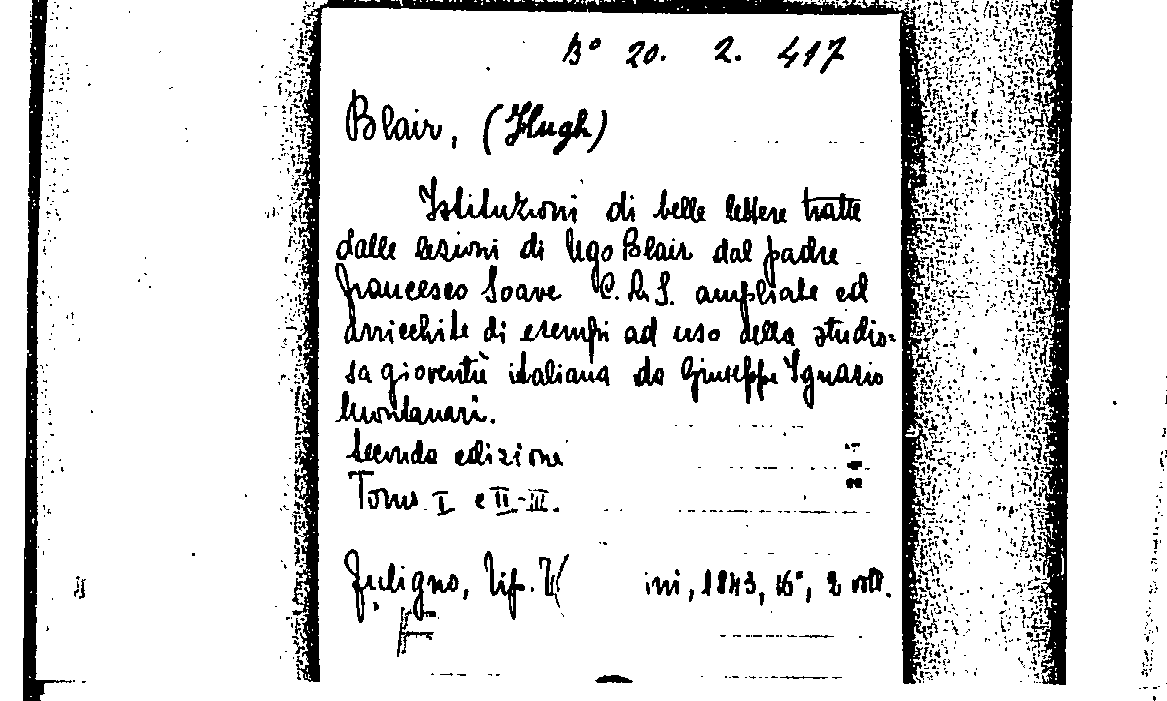 B° 20. 2. 417
Blair, (Hugh)
Istituzioni di belle lettere tratte
dalle lezioni di Ugo Blair dal padre
Francesco Soave C.R.S. ampliate ed
arricchite di esempi ad uso della studio-
sa gioventù italiana da Giuseppe Ignazio
Montanari.
Seconda edizione
Tomo I e II-III.
Fuligno, Tip. ini, 1843, 16°, 2 voll.
F